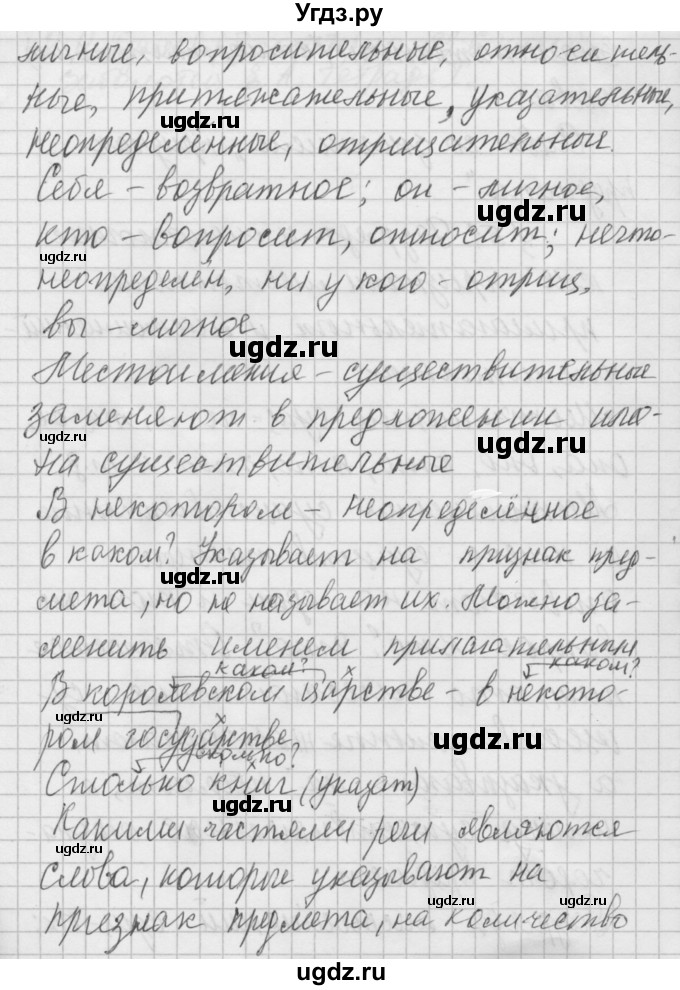 Угдз.ру
личные, вопросительные, относитель-
ные, притяжательные, указательные,
неопределенные, отрицательные.
Себя - возвратное; он - личное,
кто - вопросит, относит; нечто-
неопределён, ни у кого - отриц,
вы - личное
Местоимения - существительные
заменяют в предложении име-
на существительные
В некотором - неопределённое
в каком? Указывает на признак пред-
мета, но не называет их. Можно за-
менить именем прилагательным
каком? х каком?
В королевском царстве - в некото-
ром государстве
сколько?
Столько книг (указат)
Какими частями речи являются
слова, которые указывают на
признак предмета, на количество
ugdz.ru